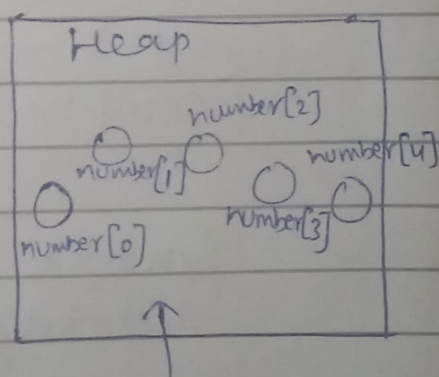 Heap
number[2]
number[1]
number[4]
number[3]
number[0]